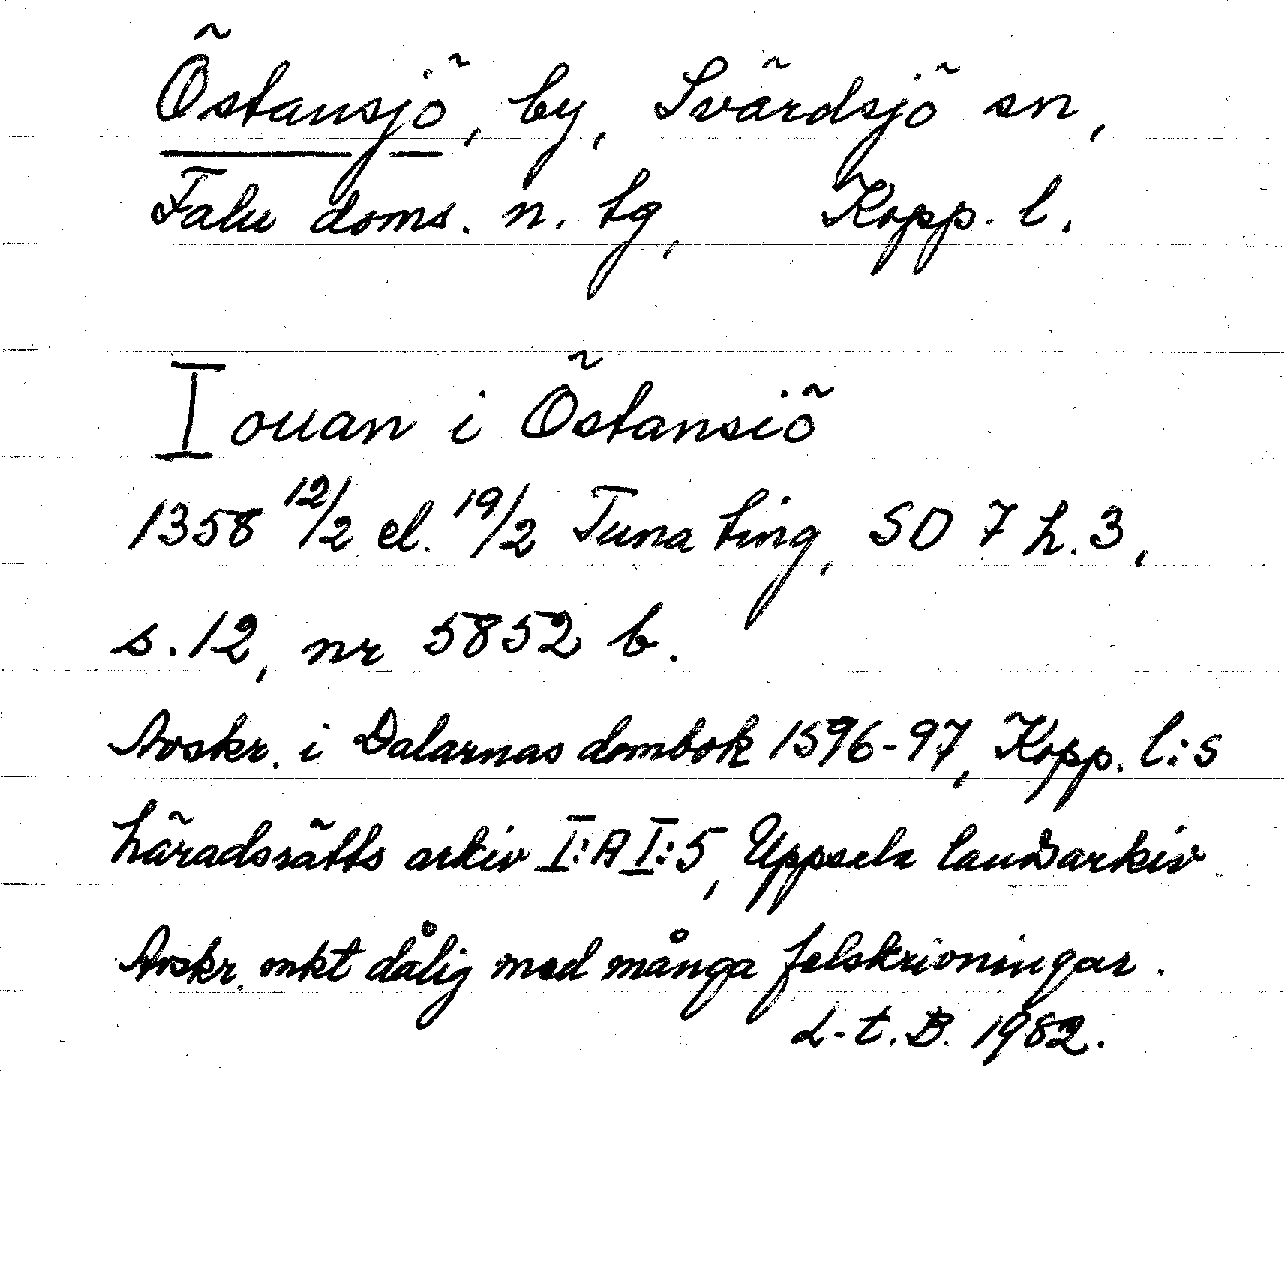 Östansjö, by, Svärdsjö sn,
Falu doms. n. tg, Kopp. l.
Iouan i Östansiö
1358 12/2 el. 19/2 Tuna ting, SD 7 h. 3,
s. 12, nr 5852 b.
Avskr. i Dalarnas dombok 1596-97, Kopp. l:s
häradsrätts arkiv I:A I:5, Uppsala landsarkiv
Avskr. mkt dålig med många felskrivningar.
L-t. B. 1982.